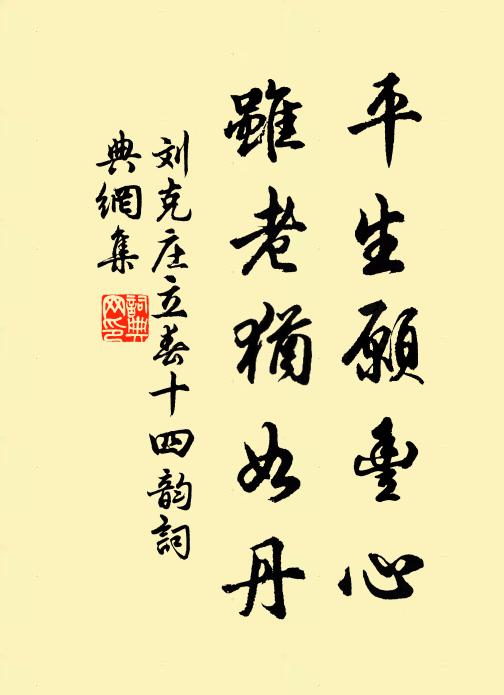 平生願豊心
雖老猶如丹
刘克庄立春十四韵詞
典網集
詞典
网印